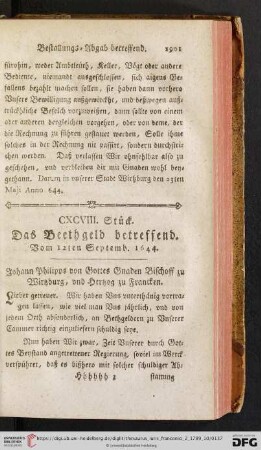 Bestallungs-Abgab betreffend. 1901
fürohin, weder Ambtleüth, Keller, Vögt oder andere
Bediente, niemandt ausgeschlossen, sich aigens Ge-
fallens bezahlt machen sollen, sie haben dann vorhero
Unsere Bewilligung außgewürckht, und deßwegen auß-
trückhliche Befelch vorzuweisen, dann sollte von einem
der anderen dergleichen vorgehen, oder von deme, der
die Rechnung zu führen gestattet werden, Solle ihme
solches in der Rechnung nit passirt, sondern durchstri-
chen werden. Daß verlassen Wir ohnfehlbar also zu
geschehen, und verbleiben dir mit Gnaden wohl bey-
gethann. Datum in unserer Stadt Würtzburg den 23ten
Maji Anno 644.
CXCVIII. Stück.
Das Beethgeld betreffend.
Vom 12ten Septemb. 1644.
Johann Philipps von Gottes Gnaden Bischoff zu
Wirtzburg, und Hertzog zu Francken.
Lieber getreuer. Wir haben Uns unterthänig vortra-
gen lassen, wie viel man Uns jährlich, und von
jedem Orth absonderlich, an Bethgeldern zu Unserer
Cammer richtig einzuliefern schuldig seye.
Nun haben Wir zwar, Zeit Unserer durch Got-
tes Beystand angetrettener Regierung, soviel im Werck
verspühret, daß es bißhero mit solcher schuldiger Ab-
Hhhhhh 2 stattung
http://digi.ub.uni-heidelberg.de/diglit/thesaurus_iuris_franconici_2_1789_10/0117
© Universitätsbibliothek Heidelberg
gefördert durch die
DFG